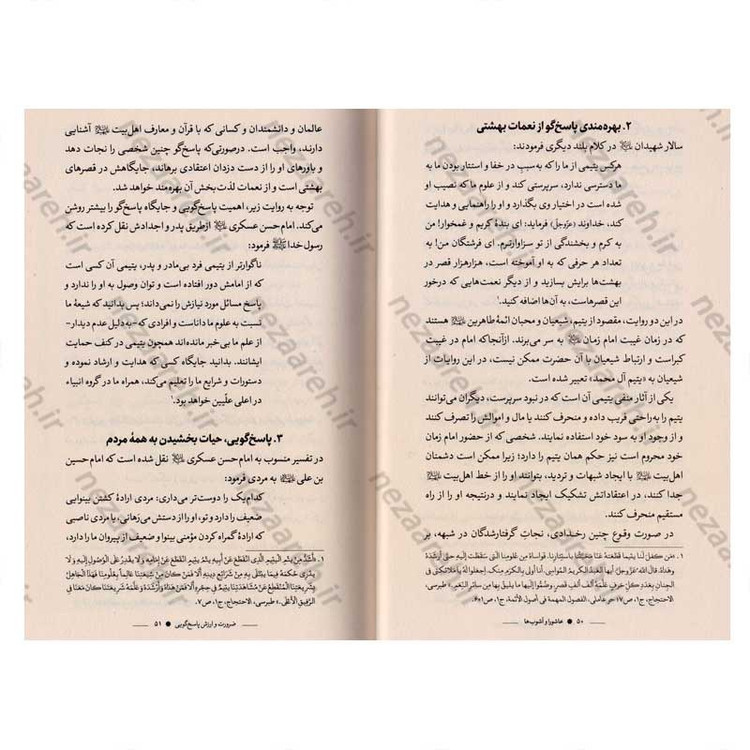 ۲. بهره‌مندی پاسخ‌گو از نعمات بهشتی
سالار شهیدان در کلام بلند دیگری فرمودند:
هرکس یتیمی از ما را که به‌سبب در خفا و استتار بودن ما به
ما دسترسی ندارد، سرپرستی کند و از علوم ما که نصیب او
شده است در اختیار وی بگذارد و او را راهنمایی و هدایت
کند، خداوند (عزّوجلّ) فرماید: ای بندهٔ کریم و غمخوار! من
به کرم و بخشندگی از تو سزاوارترم. ای فرشتگان من! به
تعداد هر حرفی که به او آموخته است، هزارهزار قصر در
بهشت‌ها برایش بسازید و از دیگر نعمت‌هایی که درخور
این قصرهاست، به آن‌ها اضافه کنید.¹
در این دو روایت، مقصود از یتیم، شیعیان و محبان ائمهٔ طاهرین هستند
که در زمان غیبت امام زمان به سر می‌برند. ازآنجاکه امام در غیبت
کبراست و ارتباط شیعیان با آن حضرت ممکن نیست، در این روایات از
شیعیان به «یتیم آل محمد» تعبیر شده است.
یکی از آثار منفی یتیمی آن است که در نبود سرپرست، دیگران می‌توانند
یتیم را به‌راحتی فریب داده و منحرف کنند یا مال و اموالش را تصرف کنند
و از وجود او به سود خود استفاده نمایند. شخصی که از حضور امام زمان
خود محروم است نیز حکم همان یتیم را دارد؛ زیرا ممکن است دشمنان
اهل‌بیت با ایجاد شبهات و تردید، بتوانند او را از خط اهل‌بیت
جدا کنند، در اعتقاداتش تشکیک ایجاد نمایند و درنتیجه او را از راه
مستقیم منحرف کنند.
در صورت وقوع چنین رخدادی، نجاتِ گرفتارشدگان در شبهه، بر
۱. «مَن كَفَلَ لَنا يتيما قَطَعَتهُ عَنّا
۵۰ ● عاشورا و آشوب‌ها
عالمان و دانشمندان و کسانی که با قرآن و معارف اهل‌بیت آشنایی
دارند، واجب است. درصورتی‌که پاسخ‌گو چنین شخصی را نجات دهد
و باورهای او را از دست دزدان اعتقادی برهاند، جایگاهش در قصرهای
بهشتی است و از نعمات لذت‌بخش آن بهره‌مند خواهد شد.
توجه به روایت زیر، اهمیت پاسخ‌گویی و جایگاه پاسخ‌گو را بیشتر روشن
می‌کند. امام حسن عسکری ازطریق پدر و اجدادش نقل کرده است که
رسول خدا فرمود:
ناگوارتر از یتیمی فرد بی‌مادر و پدر، یتیمی آن کسی است
که از امامش دور افتاده است و توان وصول به او را ندارد و
پاسخ مسائل مورد نیازش را نمی‌داند؛ پس بدانید که شیعهٔ ما
نسبت به علوم ما داناست و افرادی که -به‌دلیل عدم دیدار-
از علم ما بی خبر مانده‌اند همچون یتیمی در کنف حمایت
ایشانند. بدانید جایگاه کسی که هدایت و ارشاد نموده و
دستورات و شرایع ما را تعلیم می‌کند، همراه ما در گروه انبیاء
در اعلی علّیین خواهد بود.¹
۳. پاسخ‌گویی، حیات بخشیدن به همهٔ مردم
در تفسیر منسوب به امام حسن عسکری نقل شده است که امام حسین
بن علی به مردی فرمود:
کدام‌یک را دوست‌تر می‌داری: مردی ارادهٔ کشتن بینوایی
ضعیف را دارد و تو، او را از دستش می‌رهانی، یا مردی ناصبی
که ارادهٔ گمراه کردن مؤمنی بینوا و ضعیف از پیروان ما را دارد،
۱. «أَشَدُّ مِن يُتمِ اليَتيمِ الَّذي انقَطَعَ عَن أبيهِ يُتمُ يَتيمٍ انقَطَعَ عَن إمامِهِ وَ لا يَقدِرُ عَلَى الوُصولِ إلَيهِ وَ لا
ضرورت و ارزش پاسخ‌گویی ● ۵۱
nezaareh.ir